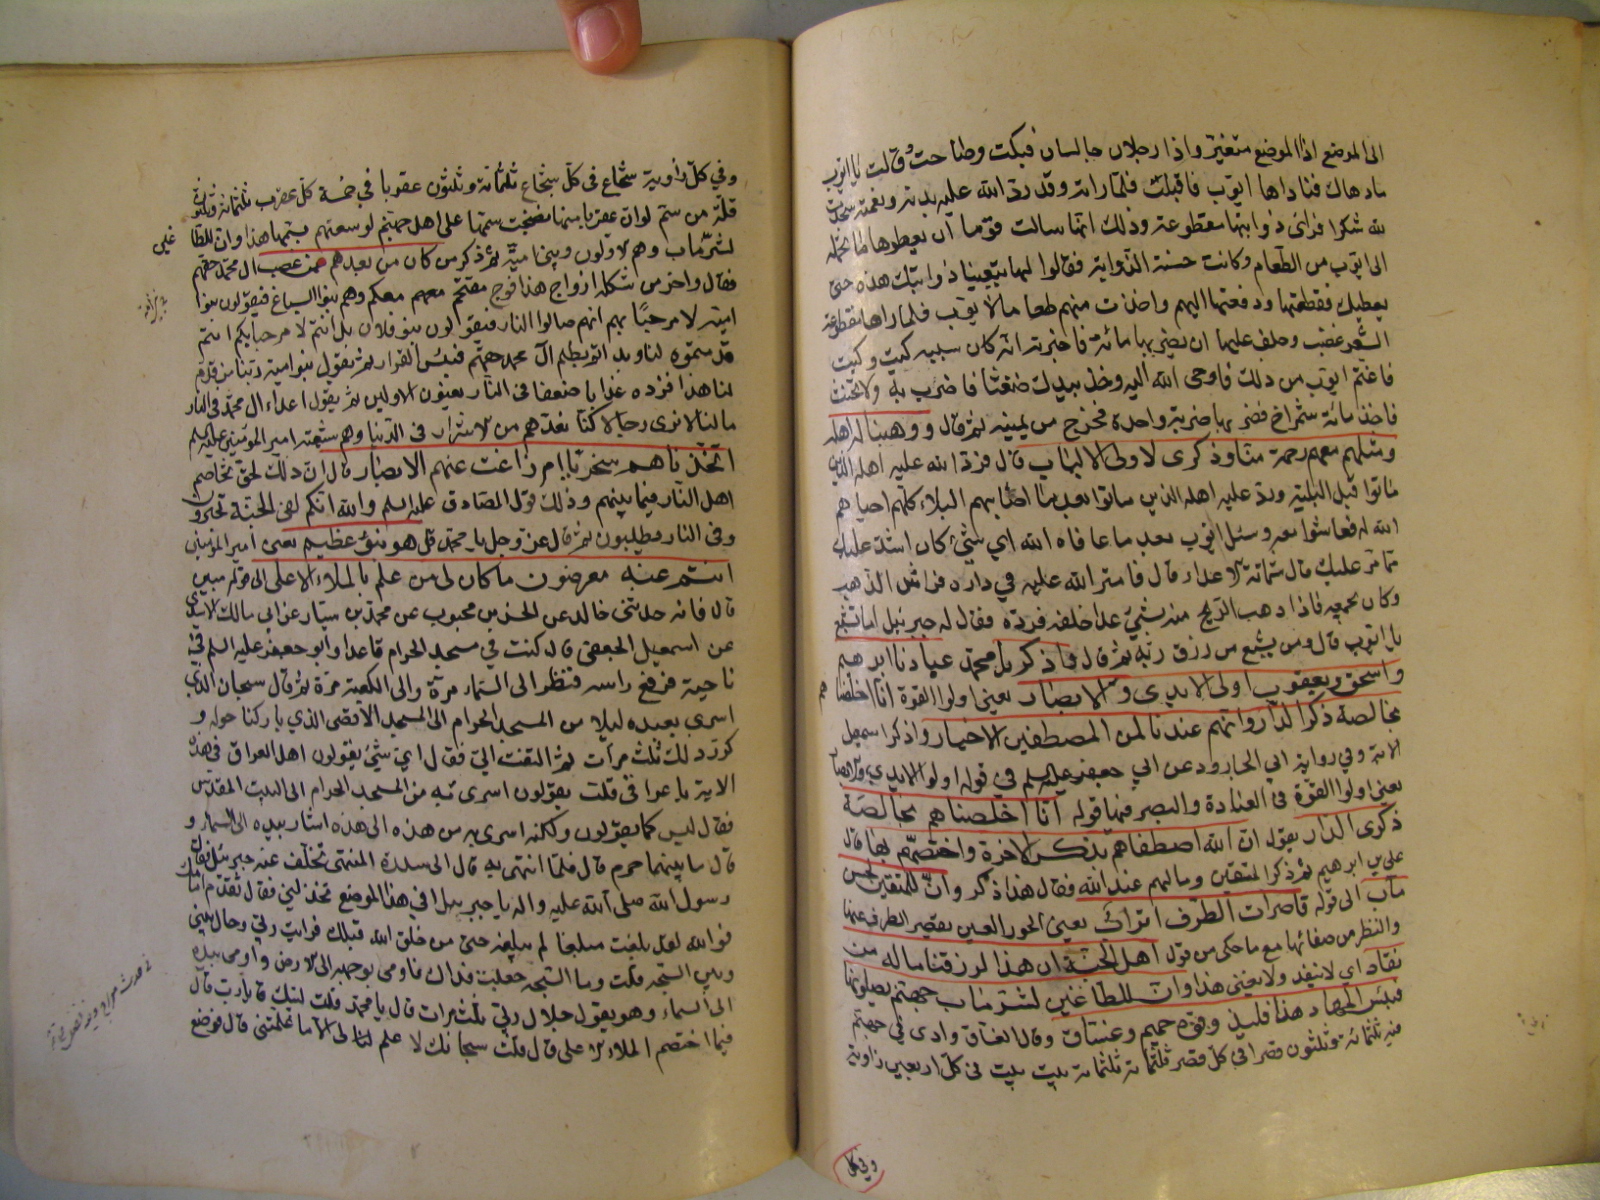 الى الموضع اذا الموضع متغير واذا رجلان جالسان فبكت وصاحت وقالت يا ايوب
ما دهاك فناداها ايوب فاقبلت فلما راته وقد رد الله عليه بدنه ونعمته سجدت
لله شكرا فرأى ذوابتها مقطوعة وذلك انها سالت قوما ان يعطوها ما تحمله
الى ايوب من الطعام وكانت حسنة الذوابة فقالوا لها تبيعينا ذوابتك هذه حتى
نعطيك فقطعتها ودفعتها اليهم واخذت منهم طعاما لايوب فلما راها مقطوعة
الشعر غضب وحلف عليها ان يضربها مائة فاخبرته انه كان سببه كيت وكيت
فاغتم ايوب من ذلك فاوحى الله اليه وخذ بيدك ضغثا فاضرب به ولا تحنث
فاخذ مائة شمراخ فضربها ضربة واحدة فخرج من يمينه ثم قال ووهبنا له اهله
ومثلهم معهم رحمة منا وذكرى لاولى الالباب قال فرد الله عليه اهله الذين
ماتوا قبل البلية ورد عليه اهله الذين ماتوا بعد ما اصابهم البلاء كلهم احياهم
الله له فعاشوا معه وسئل ايوب بعد ما عافاه الله اي شيء كان اشد عليك
مما مر عليك قال شماتة الاعداء قال فامطر الله عليه في داره فراش الذهب
وكان يجمعه فاذا ذهب الريح منه بشيء عدا خلفه فرده فقال له جبرئيل اما تشبع
يا ايوب قال ومن يشبع من رزق ربه ثم قال واذكر يا محمد عبادنا ابرهيم
واسحق ويعقوب اولى الايدي والابصار يعنى اولوا القوة انا اخلصناهم
بخالصة ذكرا الدار وانهم عندنا لمن المصطفين الاخيار واذكر اسمعيل
الاية وفي رواية ابي الجارود عن ابي جعفر عليه السلم في قوله اولوا الايدي والابصار
يعنى اولوا القوة في العبادة والبصر فيها قوله انا اخلصناهم بخالصة
ذكرى الدار يقول ان الله اصطفاهم بذكر الاخرة واختصهم بها قال
علي بن ابرهيم ثم ذكر المتقين وما لهم عند الله فقال هذا ذكر وان للمتقين لحسن
مآب الى قوله قاصرات الطرف اتراب يعنى الحور العين يقصر الطرف عنها
والنظر من صفائها مع ما حكى من قول اهل الجنة ان هذا لرزقنا ما له من
نفاد اي لا ينفد ولا يفنى هذا وان للطاغين لشر مآب جهنم يصلونها
فبئس المهاد هذا فليذوقوه حميم وغساق وقال الغساق وادى في جهنم
فيه ثلثمائة وثلثون قصرا في كل قصر ثلثمائة بيت في كل بيت اربعين زاوية
وفي كل
وفي كل زاوية شجاع في كل شجاع ثلثمائة وثلثون عقربا في حمة كل عقرب ثلثمائة وثلثون
قلة من سم لو ان عقربا منها نضحت سمها على اهل جهنم لوسعتهم بسمها هذا وان للطاغين
لشر مآب وهم الاولون وبني امية ثم ذكر من كان من بعدهم ممن غصب آل محمد حقهم
فقال واخر من شكله ازواج هذا فوج مقتحم معكم وهم بنو السباع فيقولون بنو
امية لا مرحبا بهم انهم صالوا النار فيقولون بنو فلان بل انتم لا مرحبا بكم انتم
قدمتموه لنا وبدأتم بظلم آل محمد جهنم فبئس القرار ثم يقول بنو امية ربنا من قدم
لنا هذا فزده عذابا ضعفا في النار يعنون الاولين ثم يقول اعداء ال محمد في النار
ما لنا لا نرى رجالا كنا نعدهم من الاشرار في الدنيا وهم شيعة امير المؤمنين عليه السلم
اتخذناهم سخريا ام زاغت عنهم الابصار قال ان ذلك لحق تخاصم
اهل النار فيما بينهم وذلك قول الصادق عليه السلم والله انكم لفي الجنة تحبرون
وفي النار تطلبون ثم قال عز وجل يا محمد قل هو نبؤ عظيم يعنى امير المؤمنين
انتم عنه معرضون ما كان لى من علم بالملاء الاعلى الى قوله مبين
قال فانه حدثني خالد عن الحسن بن محبوب عن محمد بن سيار عن ابي مالك الاسدي
عن اسمعيل الجعفي قال كنت في مسجد الحرام قاعدا وابو جعفر عليه السلم في
ناحية فرفع راسه فنظر الى السماء مرة والى الكعبة مرة ثم قال سبحان الذي
اسرى بعبده ليلا من المسجد الحرام الى المسجد الاقصى الذي باركنا حوله و
كرر ذلك ثلث مرات ثم التفت الي فقال اي شيء يقولون اهل العراق في هذه
الاية يا عراقي قلت يقولون اسرى به من المسجد الحرام الى البيت المقدس
فقال ليس كما يقولون ولكنه اسرى به من هذه الى هذه اشار بيده الى السماء و
قال ما بينهما حرم قال فلما انتهى به قال الى سدرة المنتهى تخلف عنه جبرئيل فقال
رسول الله صلى الله عليه واله يا جبرئيل في هذا الموضع تخذلني فقال تقدم امامك
فو الله لقد بلغت مبلغا لم يبلغه حتى من خلق الله قبلك فرايت ربي وحال بيني
وبين السبحة قلت وما السبحة جعلت فداك فاومى بوجهه الى الارض واومى بيده
الى السماء وهو يقول جلال ربي ثلث مرات قال يا محمد قلت لبيك يا رب قال
فيما اختصم الملاء الاعلى قال قلت سبحانك لا علم لنا الا ما علمتني قال فوضع